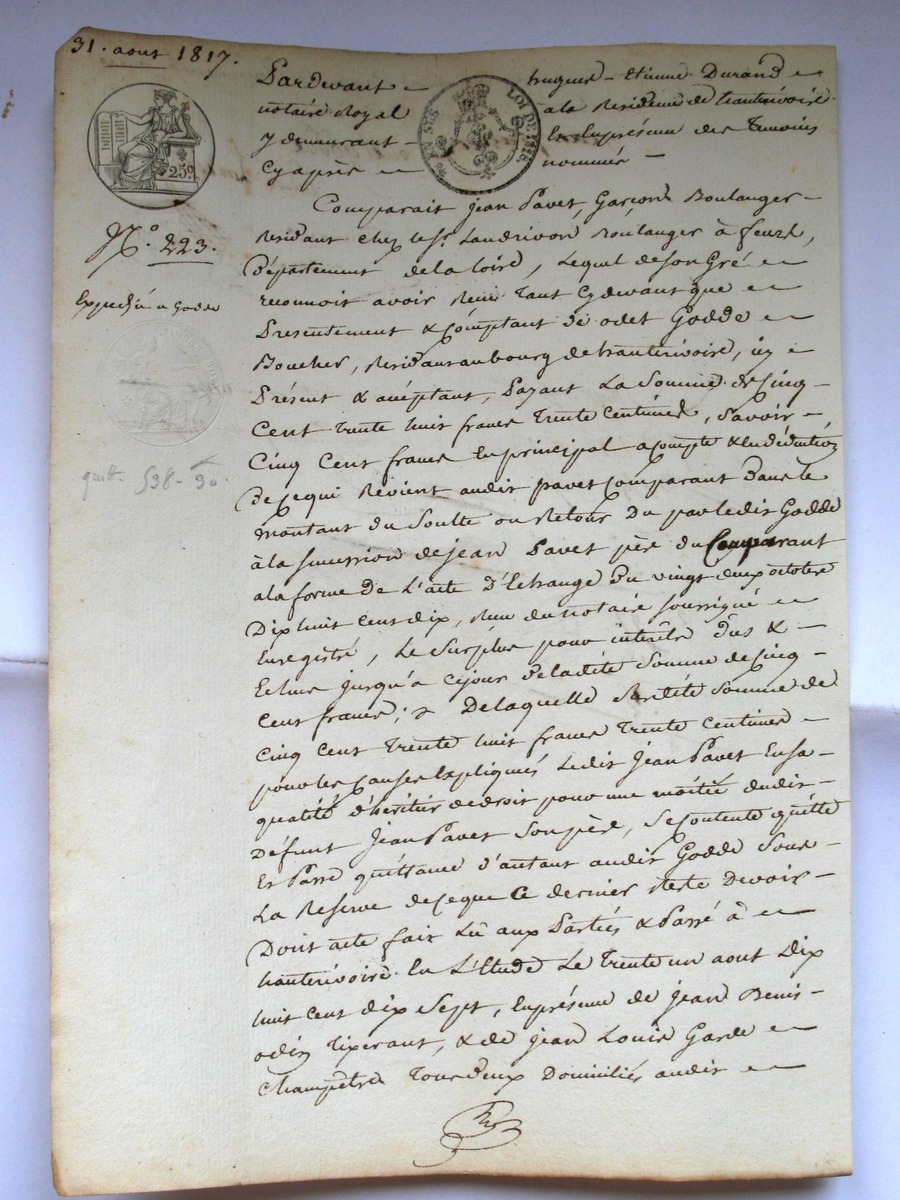 31. aout 1817.
Pardevant hugues - Etienne Durand
notaire Royal à la Residence de hauterivoire
y demeurant Et En presence des Temoins
Cy après nommés
25c
LOI DE 1816
N.° 223.
Expedié a Godde
quitt. 538 - 30.
Comparait Jean Pavet, Garçon Boulanger
Residant chez le Sr. Landrivon Boulanger à feurs,
département de la loire, Lequel de son Gré
reconnoit avoir Reçu Tant cy devant que
Presentement & comptant de odet Godde
Boucher, Residant au bourg de hauterivoire, icy
Présent & acceptant, Payant La Somme de Cinq
Cent trente huit francs Trente Centimes, Savoir
Cinq Cent francs En principal acompte & En déduction
de ce qui Revient audit pavet Comparant dans le
montant du Soulte ou Retour Du par ledit Godde
à la succession de jean Pavet père du Comparant
a la forme de L'acte d'Echange Du vingt deux octobre
Dix huit cent dix, Reçu du notaire soussigné
Enregistré, Le Surplus pour intérêts dus &
Echus jusqu'à ce jour de ladite Somme de Cinq
Cent francs; De laquelle Susdite Somme de
Cinq Cent Trente huit francs Trente Centimes
pour les Causes Expliqués Ledit Jean Pavet En sa
qualité d'héritier de droit pour une moitié dudit
défunt Jean Pavet Son père, Se Contente quitte
Et Passe quittance d'autant audit Godde Sous
La Reserve de ce que Ce dernier Reste Devoir
Dont acte fait Lû aux Parties & Passé à
hauterivoire En L'Etude Le Trente un aout Dix
huit Cent dix Sept, En présence de jean Benis
odin Tixerant, & de Jean Louis Garde
Champêtre Tous deux Domiciliés audit